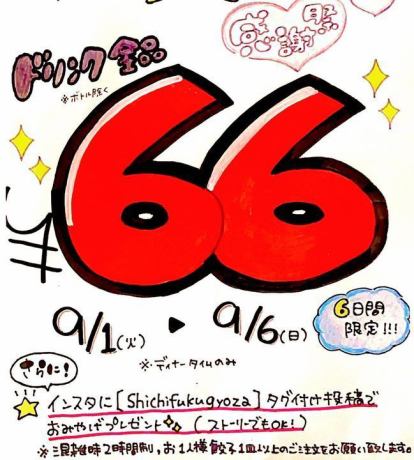 感謝祭
ドリンク全品
※ボトル除く
¥66
9/1(火) ▶ 9/6(日)
6日間
限定!!!
※ディナータイムのみ
さらに!
インスタに[Shichifukugyoza]タグ付け投稿で
おみやげプレゼント (ストーリーでもOK!)
※混雑時2時間制、お1人様餃子1皿以上のご注文をお願い致します